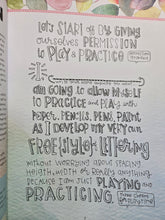 Let's START OFF BY GIVING
ourselves PERMISSION
to PLAY & PRACTICE
I
am GOING to allow MYSELF
to PRACTICE and PLAY with
PAPER, PENCILS, PENS, PAINT
AS I DEVELOP MY VERY OWN
FREE{style} LETTERING
WITHOUT WORRYING ABOUT SPACING
HEIGTH, WIDTH OR REALLY ANYTHING
BECAUSE I AM JUST PLAYING AND
PRACTICING.